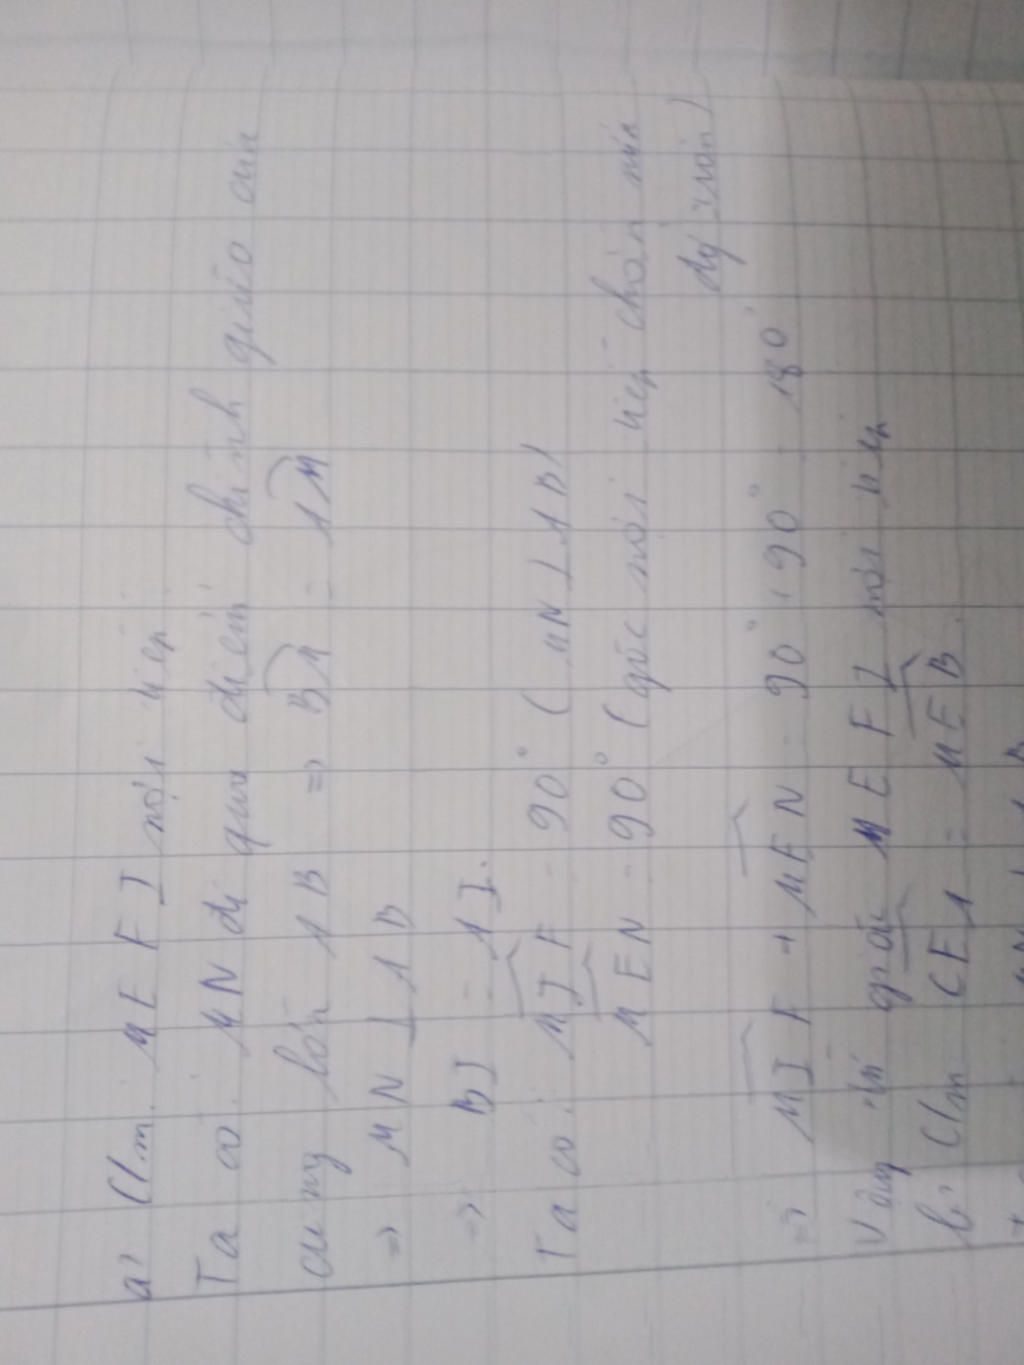 a, C/m: MEFI nội tiếp
Ta có: MN đi qua điểm chính giữa của
cung lớn AB => BM = AM
=> MN ⊥ AB
=> BI = AI.
Ta có: MIF = 90° ( MN ⊥ AB )
MEN = 90° (góc nội tiếp chắn nửa
đg tròn)
=> MIF + MEN = 90° + 90° = 180°
Vậy tứ giác MEFI nội tiếp
b, C/m CEA = MEB.